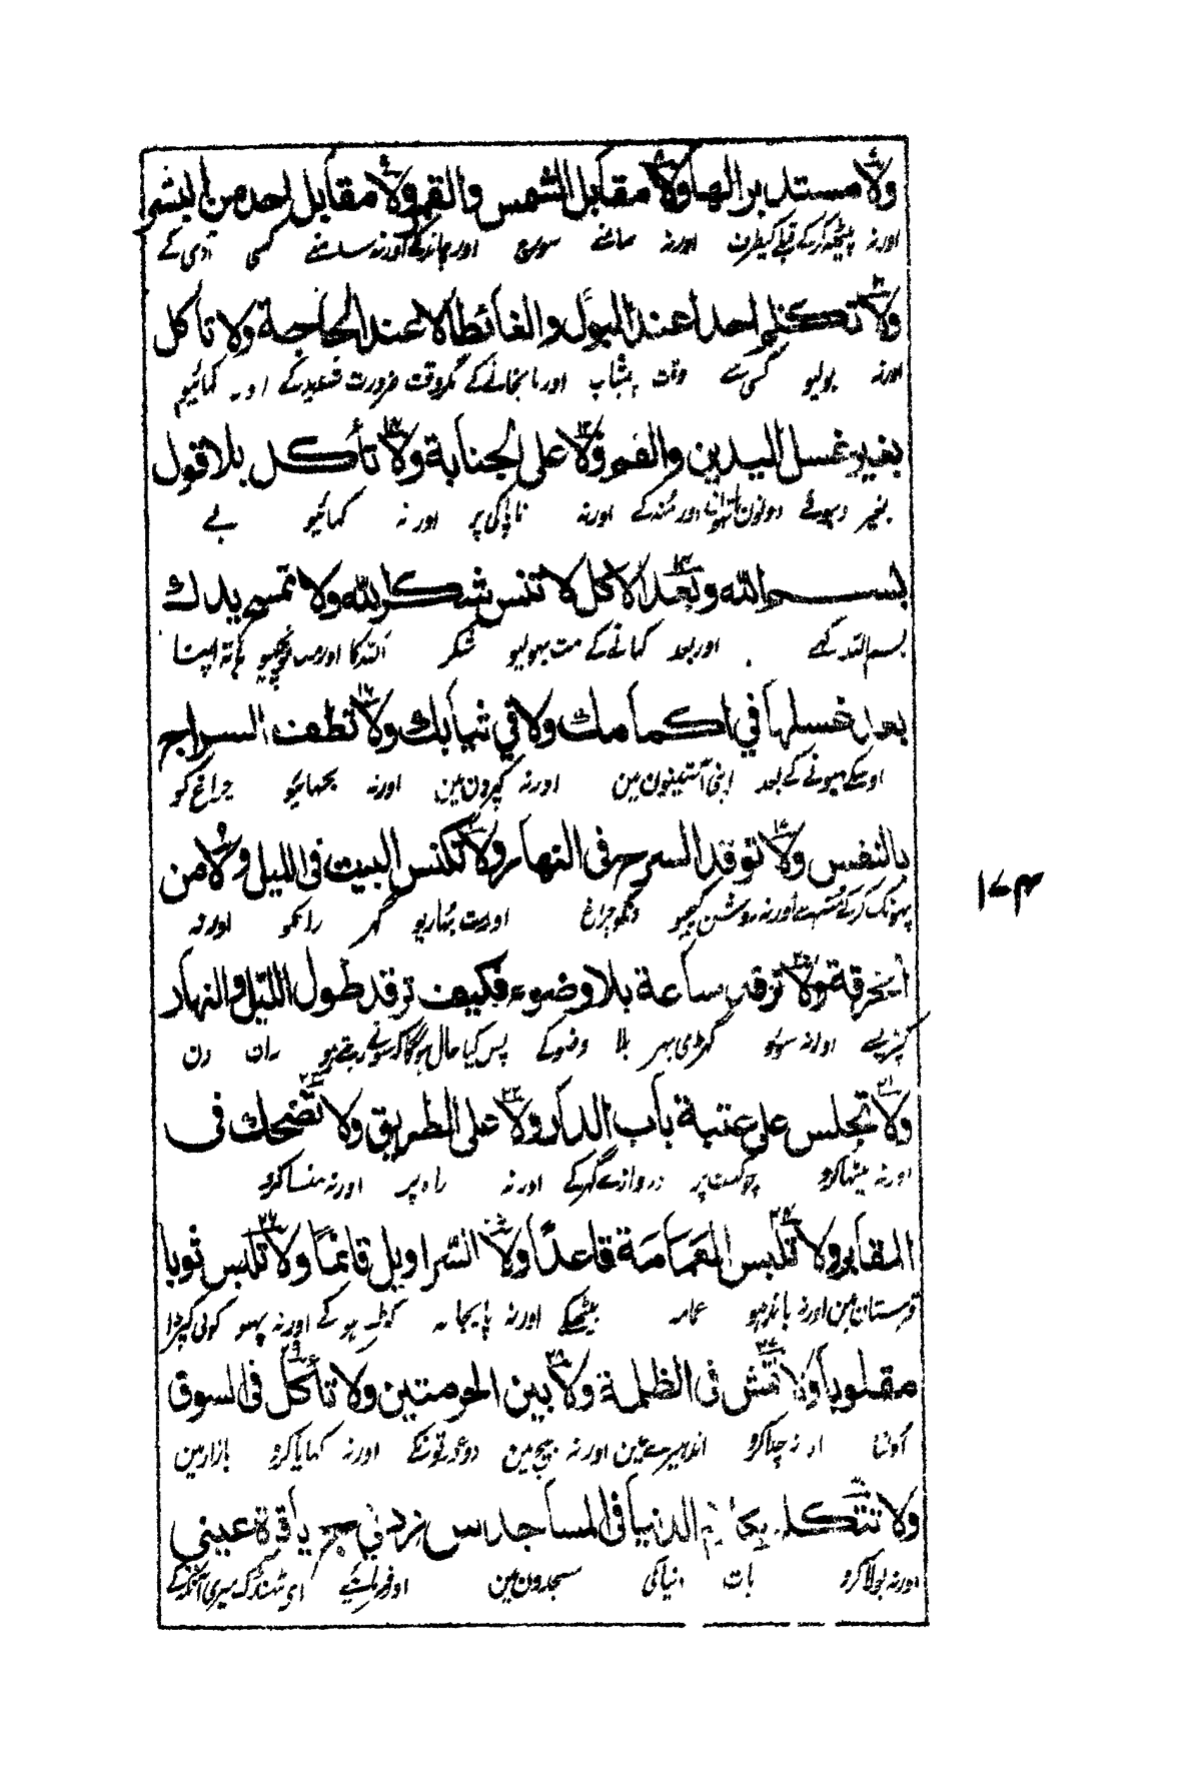 ولا مستدبر الها ولا مقابل الشمس والقمر ولا مقابل احد من البشر
اور نہ پیٹھ کر کے قبلے کیطرف اور نہ سامنے سورج اور چاند کے اور نہ سامنے کسی آدمی کے
ولا تكلم احدا عند البول والغائط الا عند الحاجة ولا تأكل
اور نہ بولیو کسی سے وقت پیشاب اور پائخانے کے مگر وقت ضرورت شدید کے اور نہ کھائیو
بغير غسل اليدين والفم ولا على الجنابة ولا تأكل بلا قول
بغیر دہوئے دونوں ہاتھ اور منہ کے اور نہ ناپاکی پر اور نہ کھائیو بے
بسم الله وبعد الاكل لا تنس شكر الله ولا تمسح يدك
بسم اللہ کہے اور بعد کھانے کے مت بہولیو شکر اللہ کا اور مت پونچھیو ہاتھ اپنا
بعد غسلها في اكمامك ولا في ثيابك ولا تطف السراج
اوسکے دہونے کے بعد اپنی آستینون مین اور نہ کپڑون مین اور نہ بجھائیو چراغ کو
بالنفس ولا توقد السرج فى النهار ولا تكنس البيت فى الليل ولا من
پہونک کر کے منہ سے اور نہ روشن کیجیو دنکو چراغ اور مت بہاریو گھر راتکو اور نہ
الخرقة ولا ترقد ساعة بلا وضوء فكيف ترقد طول الليل والنهار
کپڑے سے اور نہ سوئیو گھڑی بہر بلا وضو کے پس کیا حال ہوگا کہ سوتے رہتے ہو رات دن
ولا تجلس على عتبة باب الدار ولا على الطريق ولا تضحك فى
اور نہ بیٹھا کرو چوکھٹ پر دروازے گھر کے اور نہ راہ پر اور نہ ہنسا کرو
المقابر ولا تلبس العمامة قاعدًا ولا السراويل قائمًا ولا تلبس ثوبا
قبرستان مین اور نہ باندہو عمامہ بیٹھکے اور نہ پایجامہ کھڑے ہو کے اور نہ پہنو کوئی کپڑا
مقلوبا ولا تمش فى الظلمة ولا بين الحرمتين ولا تأكل فى السوق
اولٹا اور نہ چلا کرو اندہیرے مین اور نہ بیچ مین دو عورتونکے اور نہ کھایا کرو بازار مین
ولا تتكلم بكلام الدنيا فى المساجد س زدني ج يا قرة عيني
اور نہ بولا کرو بات دنیا کی مسجدون مین اور فرمائیے ای ٹھنڈک میری آنکھ کے
۱۷۴